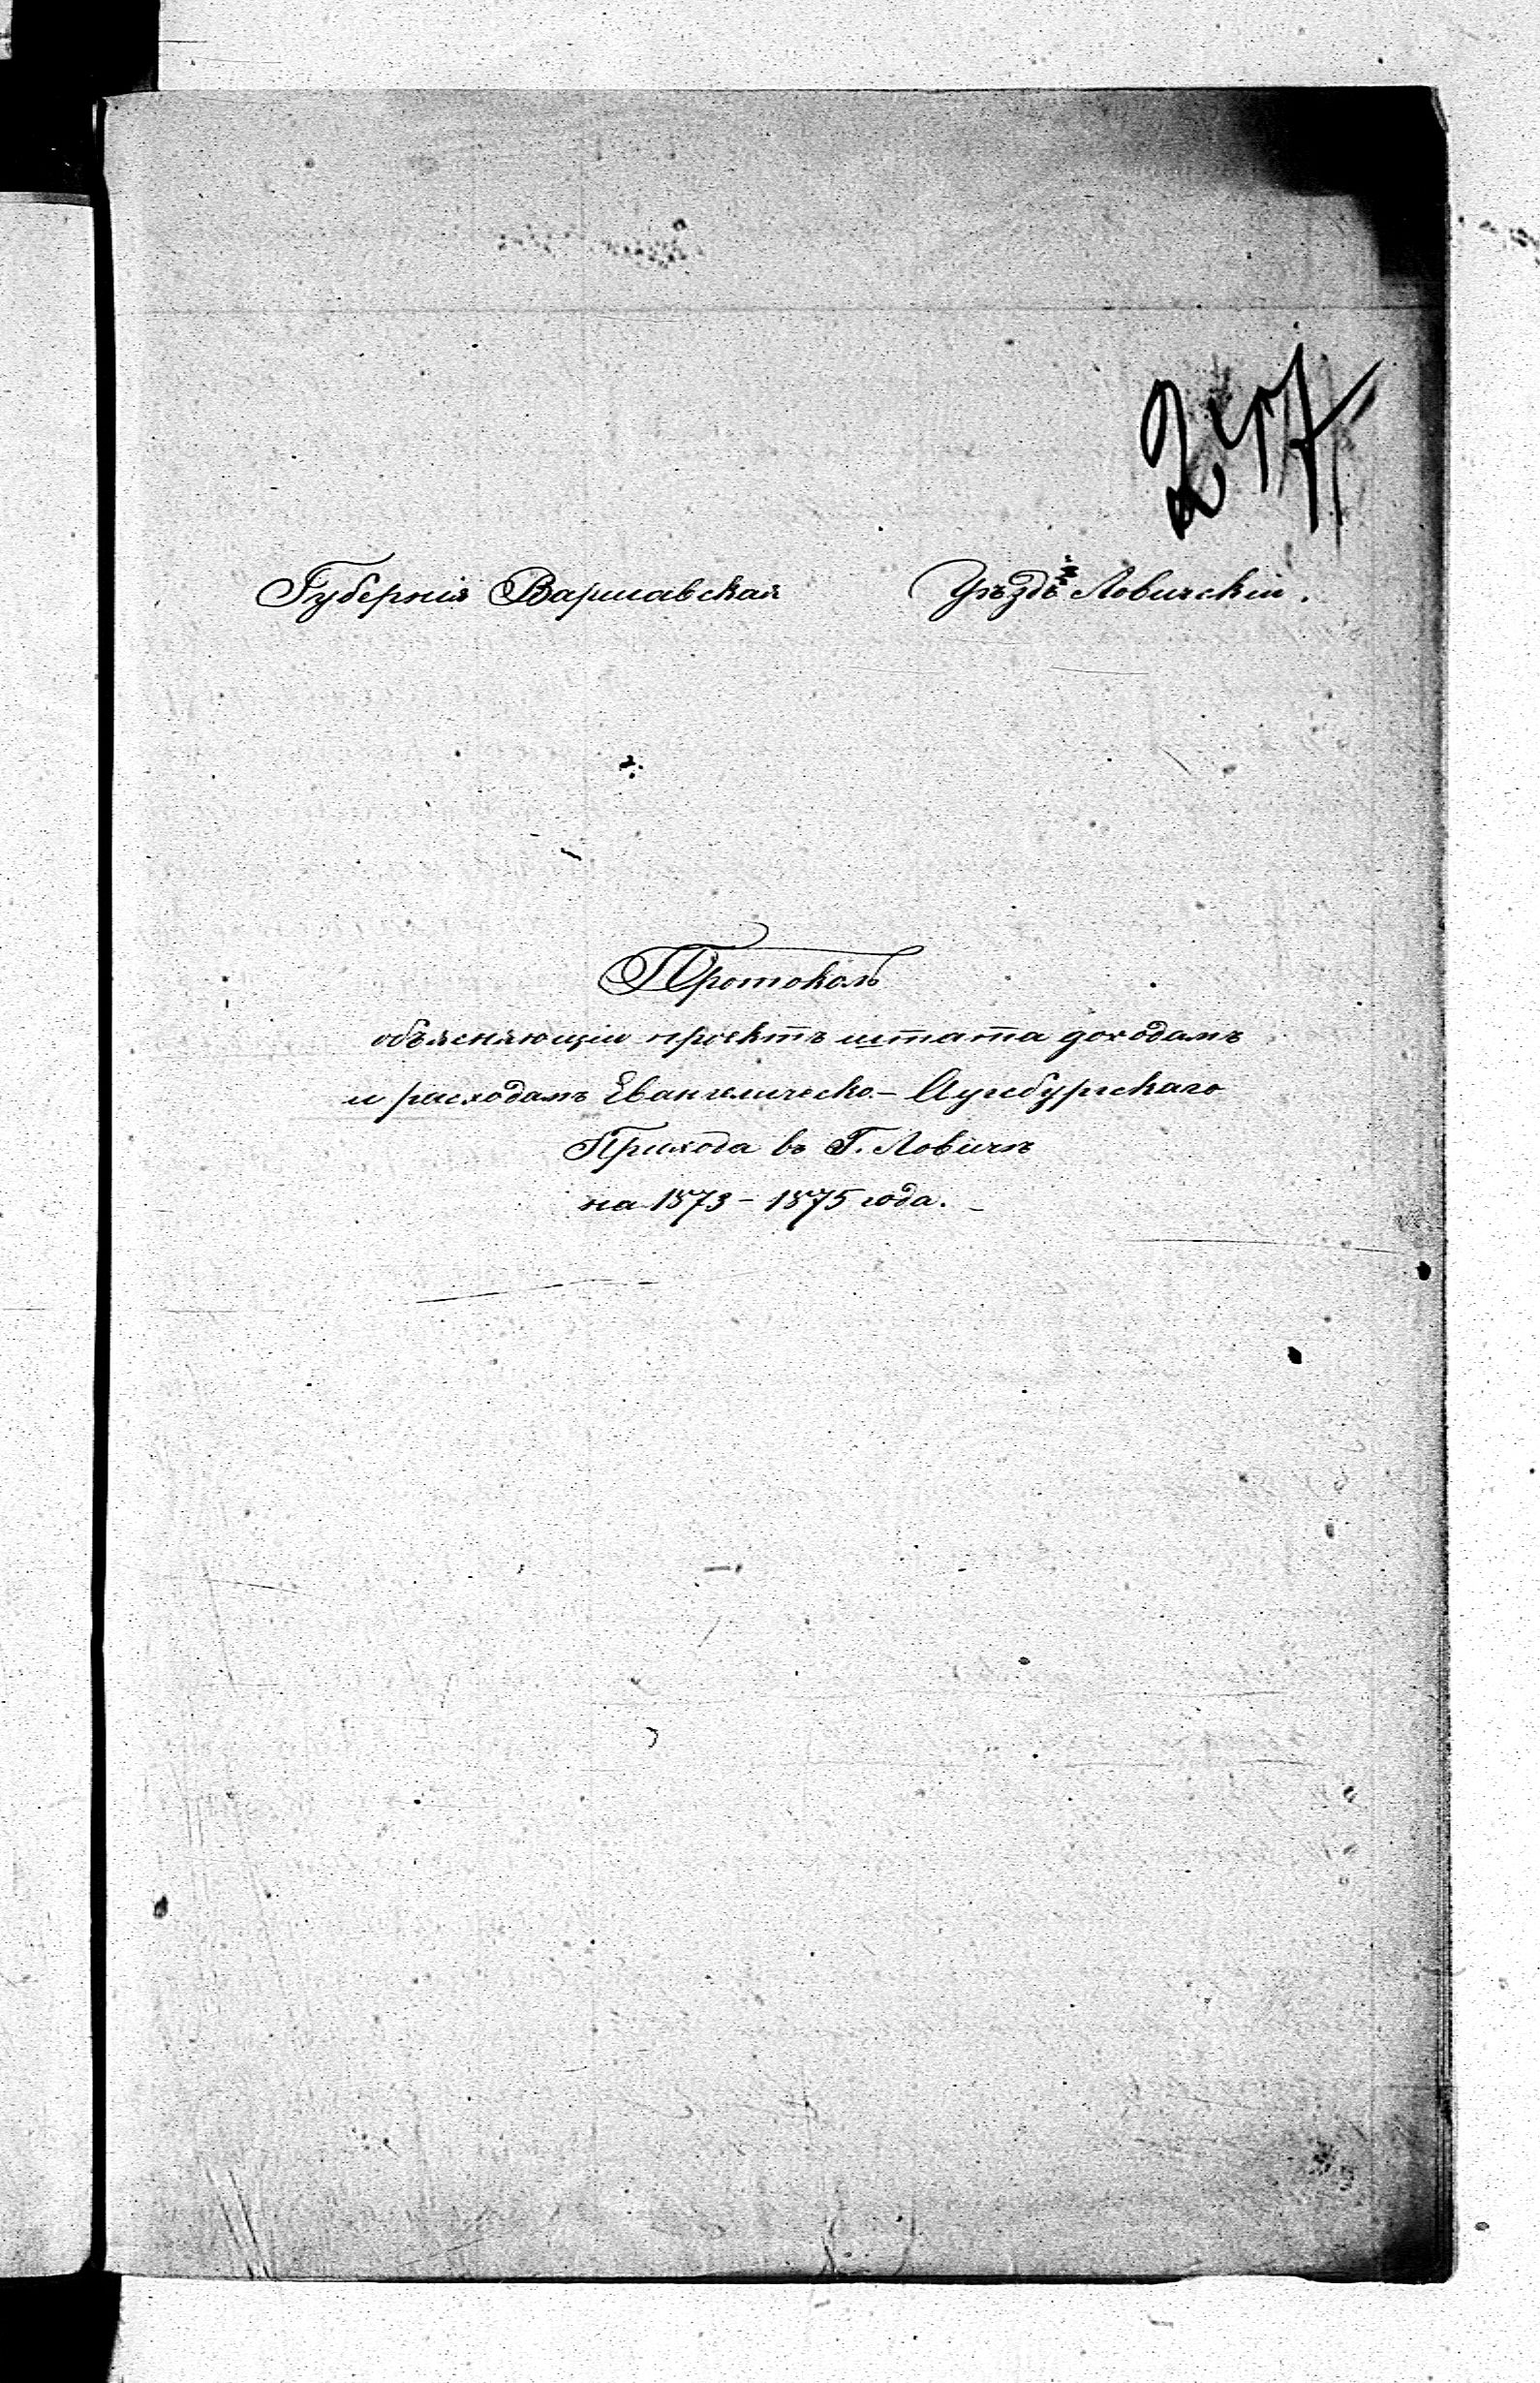 257
Губернія Варшавская Уѣздъ Ловичскій.
Протоколъ
объясняющій проектъ штата доходамъ
и расходамъ Евангелическо-Аугсбургскаго
Прихода въ Г. Ловичѣ
на 1873 - 1875 года.